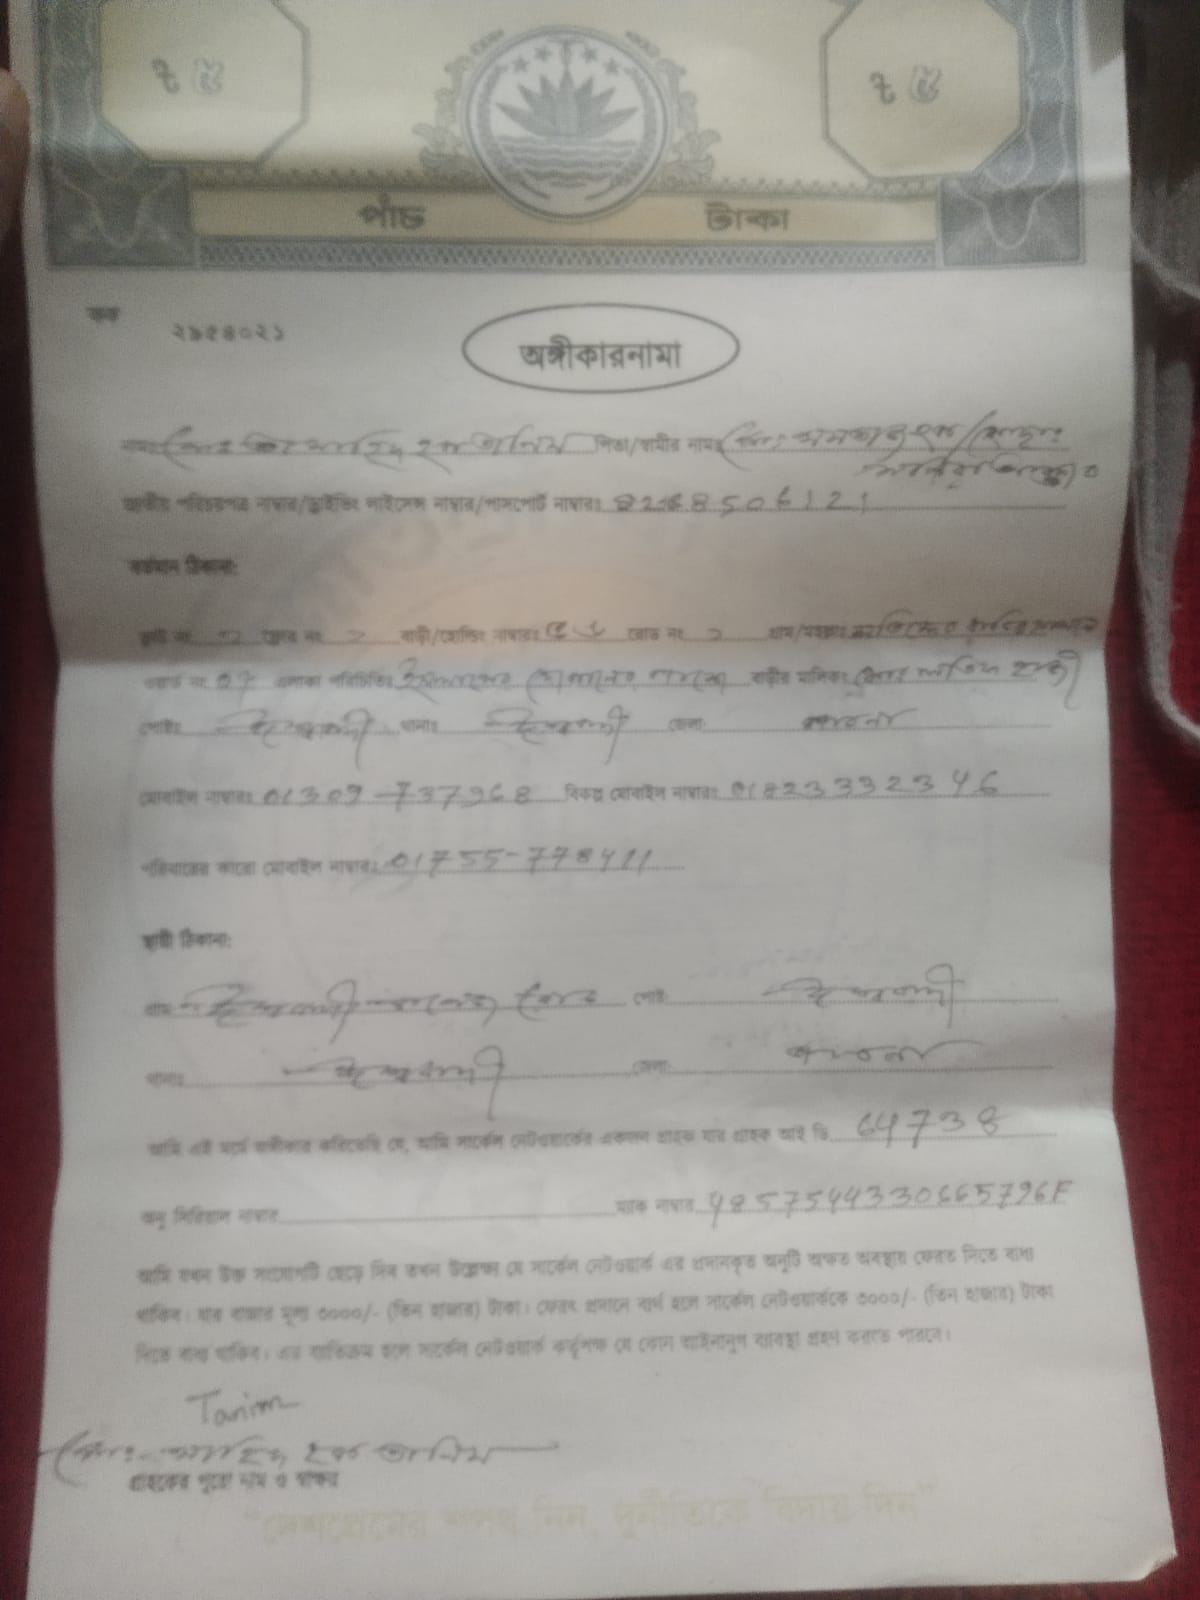 ৳ ৫ ৳ ৫
পাঁচ টাকা
কক ২৯৫৪০২১
অঙ্গীকারনামা
পিতা/স্বামীর নামঃ
জাতীয় পরিচয়পত্র নাম্বার/ড্রাইভিং লাইসেন্স নাম্বার/পাসপোর্ট নাম্বারঃ 8268506121
বর্তমান ঠিকানা:
ফ্লাট নং ২ ফ্লোর নং ২ বাড়ী/হোল্ডিং নাম্বারঃ রোড নং ১ গ্রাম/মহল্লাঃ
ওয়ার্ড নং 07 এলাকা পরিচিতিঃ বাড়ীর মালিকঃ
পোষ্টঃ ঈশ্বরদী থানাঃ ঈশ্বরদী জেলা: পাবনা
মোবাইল নাম্বারঃ 01309-737968 বিকল্প মোবাইল নাম্বারঃ
পরিবারের কারো মোবাইল নাম্বারঃ 01755-778411
স্থায়ী ঠিকানা:
গ্রামঃ ঈশ্বরদী কলেজ রোড পোষ্ট: ঈশ্বরদী
থানাঃ ঈশ্বরদী জেলা: পাবনা
আমি এই মর্মে অঙ্গীকার করিতেছি যে, আমি সার্কেল নেটওয়ার্কের একজন গ্রাহক যার গ্রাহক আই ডি 64738
অনু সিরিয়াল নাম্বার ম্যাক নাম্বার 48575443306657 96F
আমি যখন উক্ত সংযোগটি ছেড়ে দিব তখন উল্লেক্ষ্য যে সার্কেল নেটওয়ার্ক এর প্রদানকৃত অনুটি অক্ষত অবস্থায় ফেরত দিতে বাধ্য
থাকিব। যার বাজার মূল্য ৩০০০/- (তিন হাজার) টাকা। ফেরৎ প্রদানে ব্যর্থ হলে সার্কেল নেটওয়ার্ককে ৩০০০/- (তিন হাজার) টাকা
দিতে বাধ্য থাকিব। এর ব্যতিক্রম হলে সার্কেল নেটওয়ার্ক কর্তৃপক্ষ যে কোন আইনানুগ ব্যবস্থা গ্রহন করতে পারবে।
Tanim
মোঃ জাহিদ হক তানিম
গ্রাহকের পুরো নাম ও স্বাক্ষর
"দেশপ্রেমের শপথ নিন, দুর্নীতিকে বিদায় দিন"